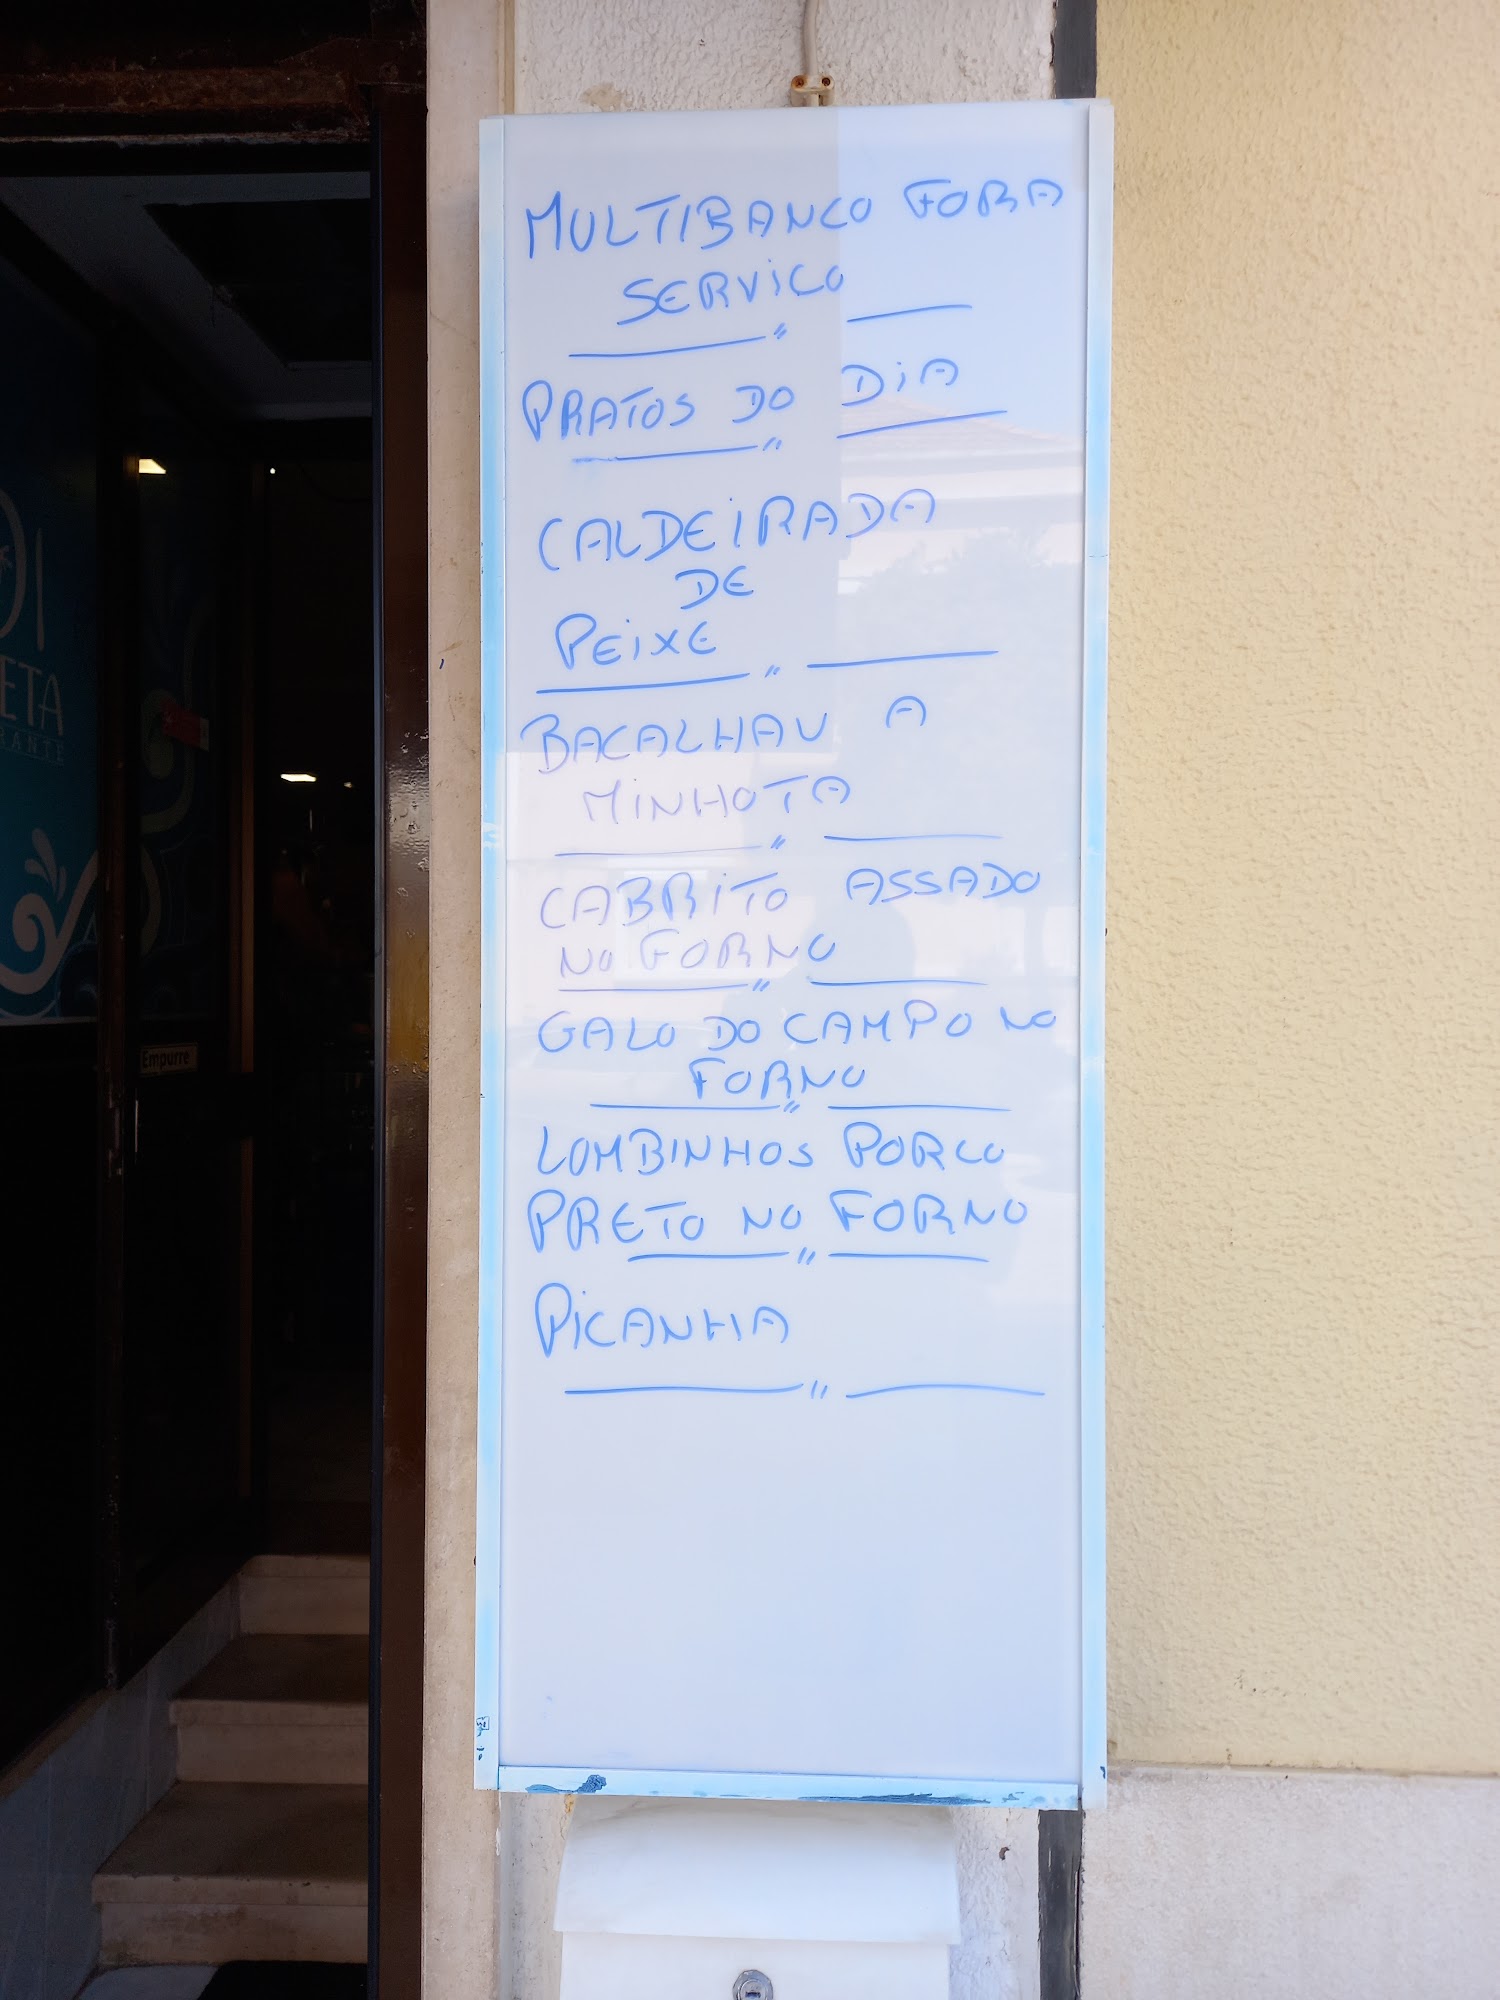 MULTIBANCO FORA
SERVICO
PRATOS DO DIA
CALDEIRADA
DE
PEIXE
BACALHAU A
MINHOTA
CABRITO ASSADO
NO FORNO
GALO DO CAMPO NO
FORNO
LOMBINHOS PORCO
PRETO NO FORNO
PICANHA
Empurre